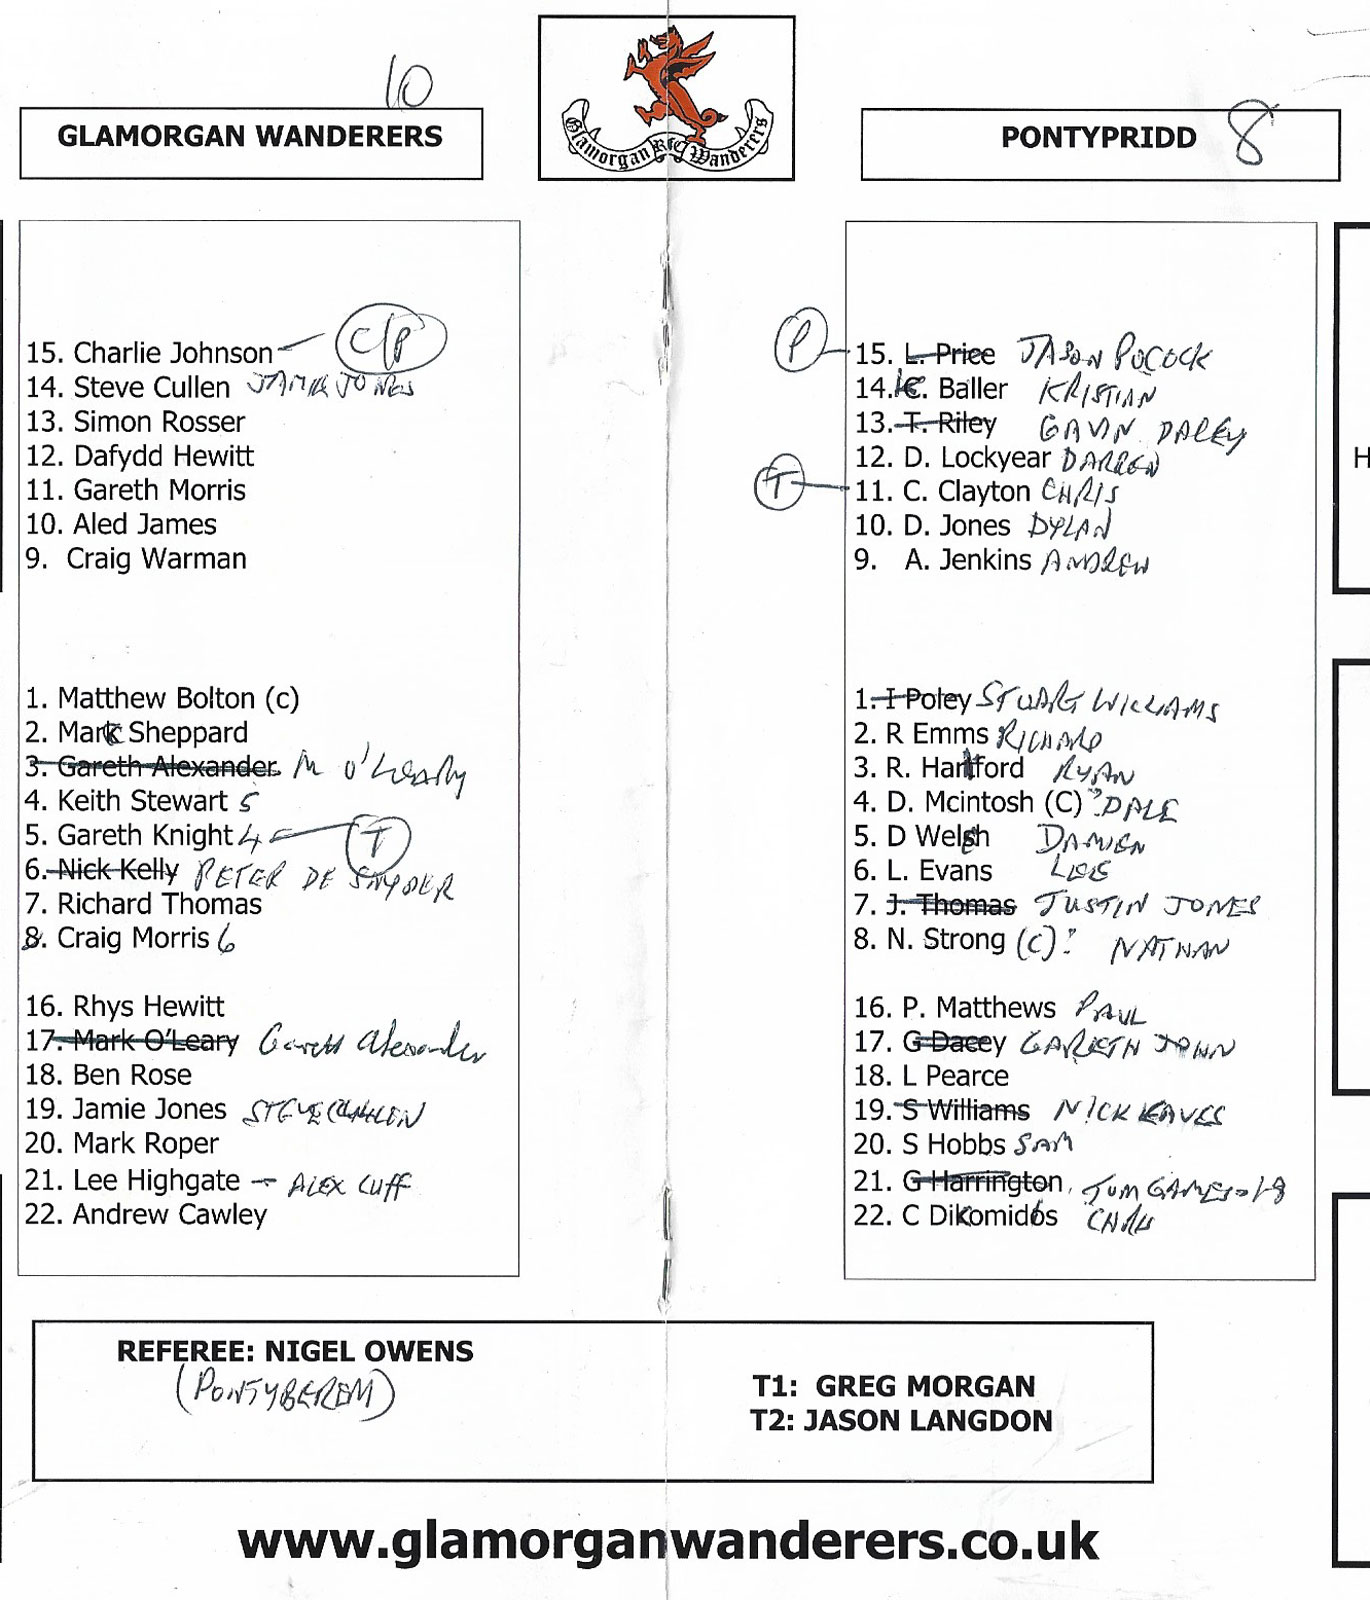 10
GLAMORGAN WANDERERS
Glamorgan RFC Wanderers
PONTYPRIDD 8
15. Charlie Johnson C/P
14. Steve Cullen JAMIE JONES
13. Simon Rosser
12. Dafydd Hewitt
11. Gareth Morris
10. Aled James
9. Craig Warman
1. Matthew Bolton (c)
2. Mark Sheppard
3. Gareth Alexander M O'Leary
4. Keith Stewart 5
5. Gareth Knight 4 T
6. Nick Kelly PETER DE SNYDER
7. Richard Thomas
8. Craig Morris 6
16. Rhys Hewitt
17. Mark O'Leary Gareth Alexander
18. Ben Rose
19. Jamie Jones STEVE CULLEN
20. Mark Roper
21. Lee Highgate - ALEX LUFF
22. Andrew Cawley
P 15. L. Price JASON POCOCK
14. C. Baller KRISTIAN
13. T. Riley GAVIN DACEY
12. D. Lockyear DARREN
T 11. C. Clayton CHRIS
10. D. Jones DYLAN
9. A. Jenkins ANDREW
1. I Poley STUART WILLIAMS
2. R Emms RICHARD
3. R. Harford RYAN
4. D. Mcintosh (C) DALE
5. D Welsh DAMIEN
6. L. Evans LEE
7. J. Thomas JUSTIN JONES
8. N. Strong (C) NATHAN
16. P. Matthews PAUL
17. G Dacey GARETH JOHN
18. L Pearce
19. S Williams NICK EAVES
20. S Hobbs SAM
21. G Harrington
22. C Dikomidos CHRIS
H
REFEREE: NIGEL OWENS
(PONTYBEREM)
T1: GREG MORGAN
T2: JASON LANGDON
www.glamorganwanderers.co.uk